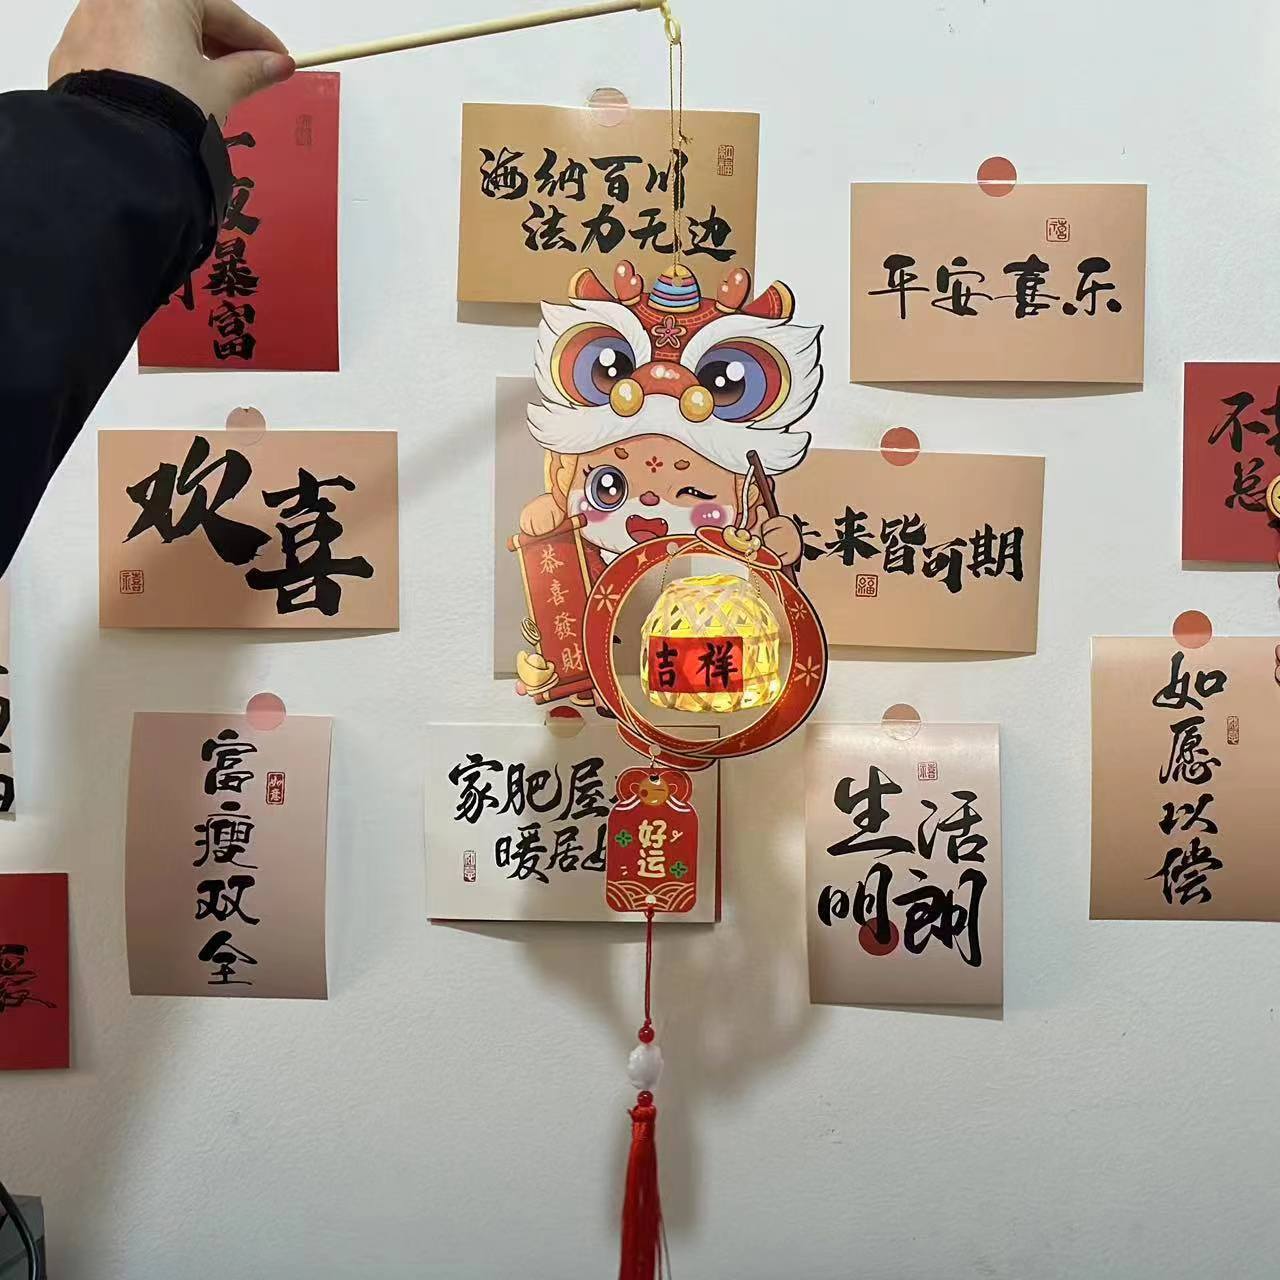 暴富
海纳百川
法力无边
平安喜乐
欢喜
未来皆可期
恭喜發財
吉祥
如愿以偿
富瘦双全
如意
家肥屋
暖居
好运
生活
明朗